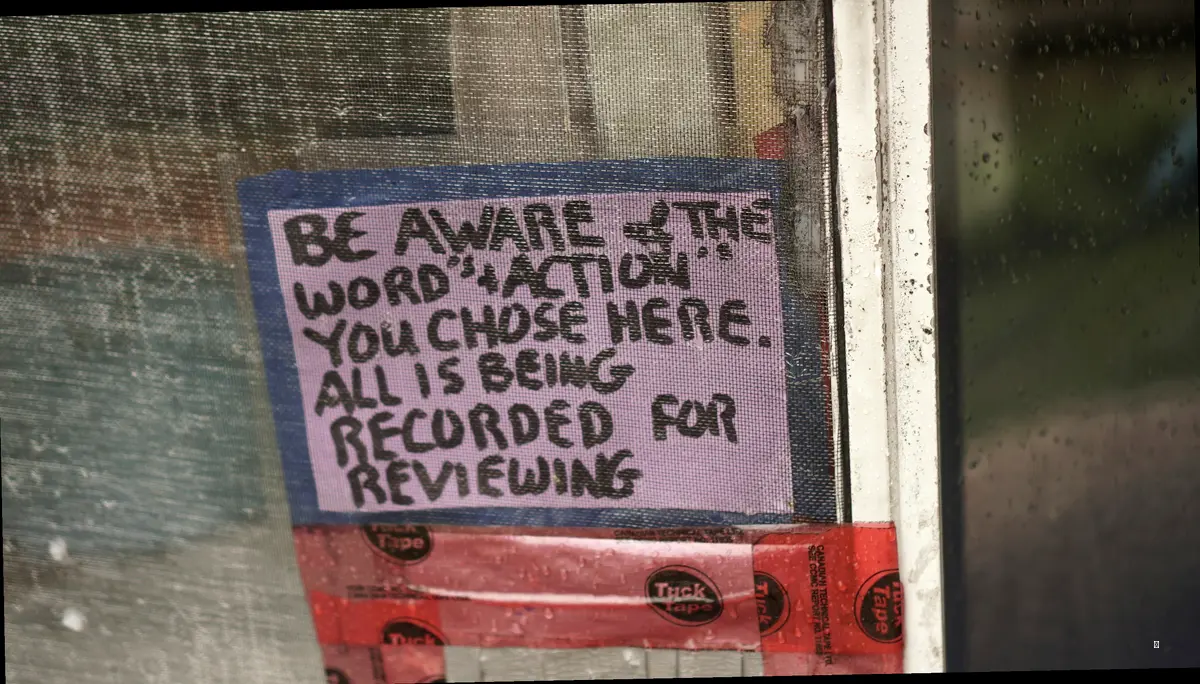 BE AWARE of THE
WORD"s +ACTION"
YOU CHOSE HERE.
ALL IS BEING
RECORDED FOR
REVIEWING
Tuck
Tape
Tuck
Tape
Tuck
Tuck
Tape
Tuck
CANADIAN TECHNICAL TAPE LTD.